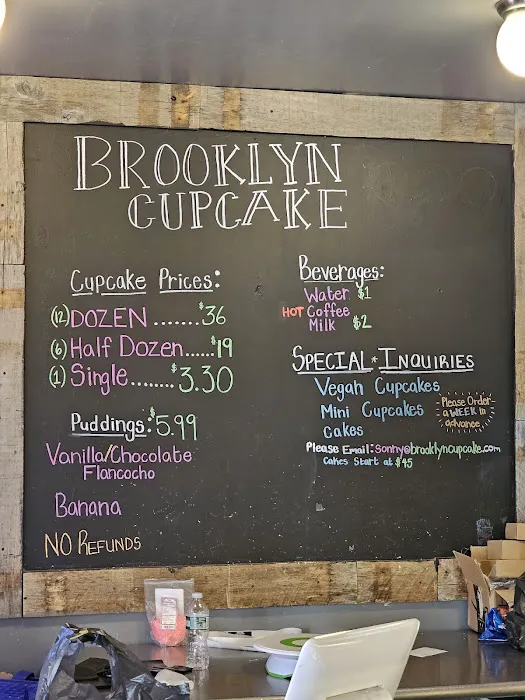 BROOKLYN
CUPCAKE
Cupcake Prices:
(12) DOZEN .......$36
(6) Half Dozen......$19
(1) Single........$3.30
Puddings: $5.99
Vanilla/Chocolate
Flancocho
Banana
NO REFUNDS
Beverages:
Water $1
HOT Coffee
Milk $2
SPECIAL * INQUIRIES
Vegan Cupcakes
Mini Cupcakes
Cakes
Please Order
a WEEK in
advance
Please Email: sonny@brooklyncupcake.com
Cakes Start at $45